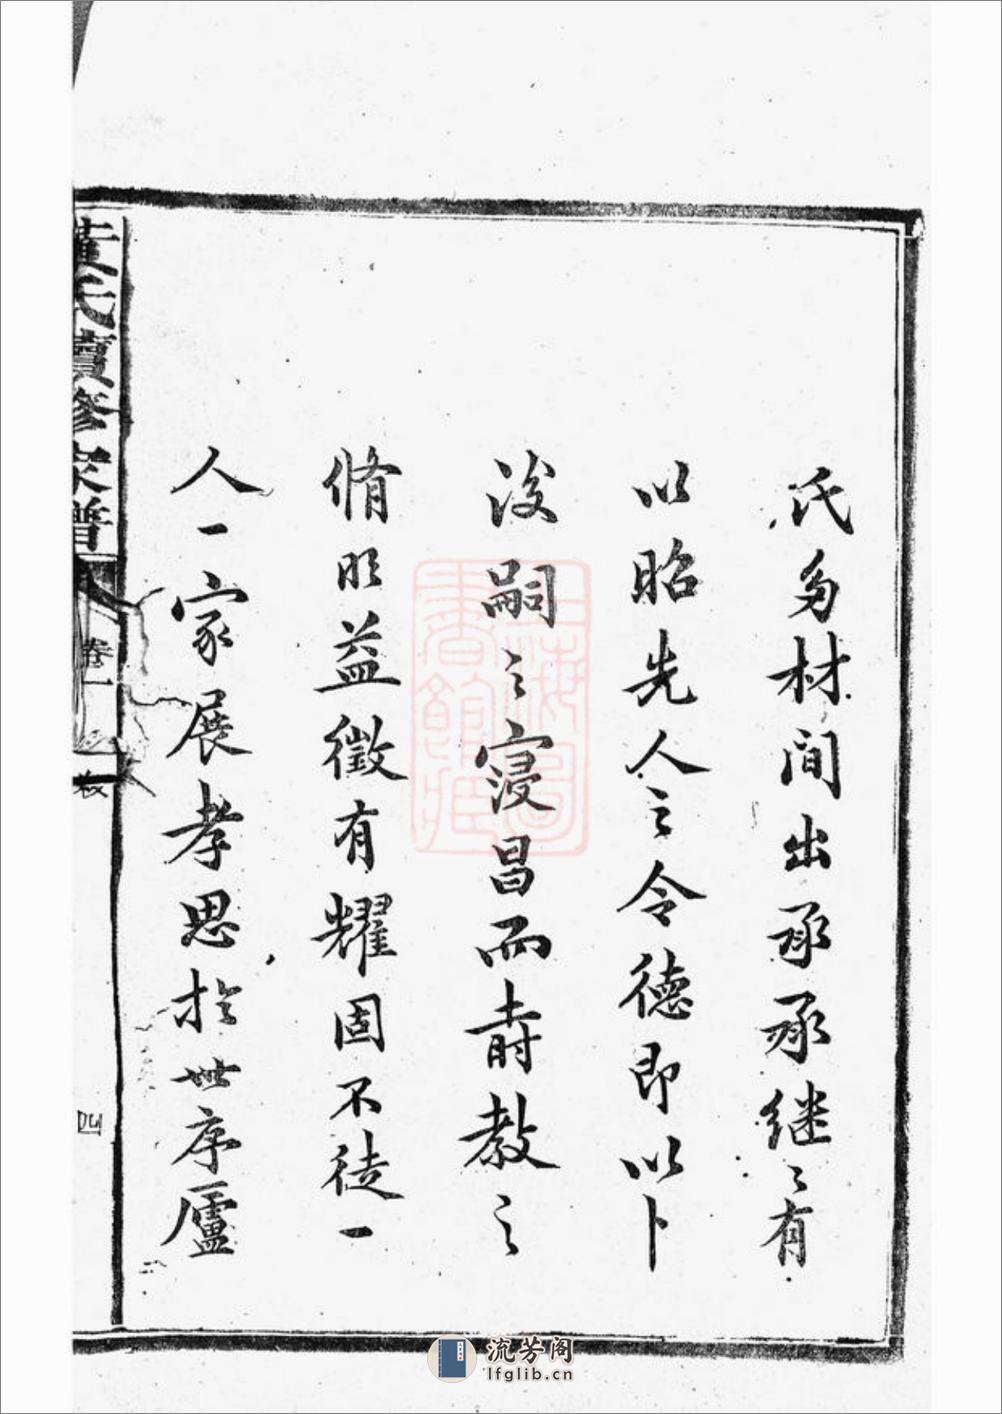 氏多材間出承承继〻有
以昭先人之令德即以卜
後嗣之寖昌而壽教之
脩明益徵有耀固不徒一
人一家展孝思扵世序廬
黃氏續修家譜
卷一
四
上海圖書館藏
流芳阁
lfglib.cn